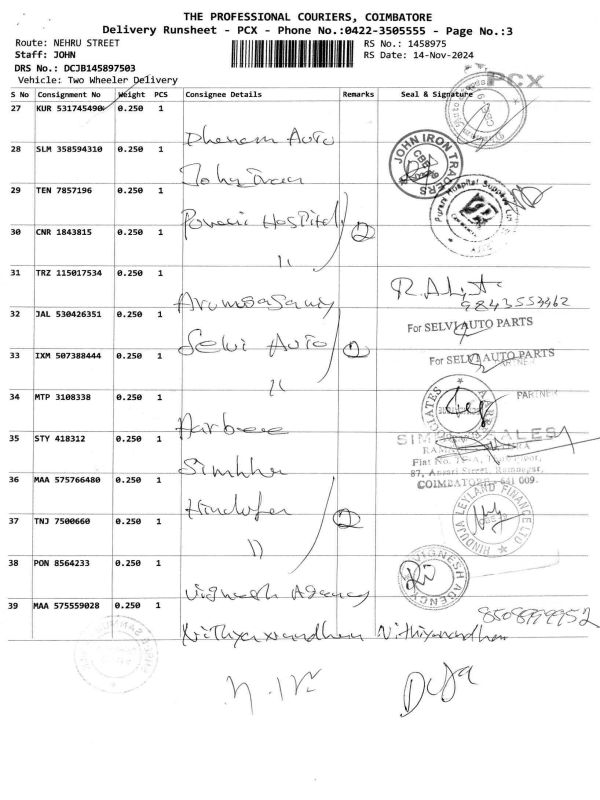 THE PROFESSIONAL COURIERS, COIMBATORE
Delivery Runsheet - PCX - Phone No.:0422-3505555 - Page No.:3
Route: NEHRU STREET
RS No.: 1458975
Staff: JOHN
RS Date: 14-Nov-2024
DRS No.: DCJB145897503
Vehicle: Two Wheeler Delivery
PCX
S No Consignment No Weight PCS Consignee Details Remarks Seal & Signature
27 KUR 531745490 0.250 1
Dhanam Auto
28 SLM 358594310 0.250 1
JOHN IRON TRADERS
CBE
29 TEN 7857196 0.250 1
Hospital
Purani Hospital Supplies
30 CNR 1843815 0.250 1
2
31 TRZ 115017534 0.250 1
9843553462
32 JAL 530426351 0.250 1
Selvi Auto
For SELVI AUTO PARTS
33 IXM 507388444 0.250 1
2
For SELVI AUTO PARTS
PARTNER
34 MTP 3108338 0.250 1
PARTNER
ASSOCIATES
35 STY 418312 0.250 1
Simhha
SALES
Flat No.
87, Ansari Street, Ramnagar,
COIMBATORE - 641 009.
36 MAA 575766480 0.250 1
HINDUJA LEYLAND FINANCE LTD
37 TNJ 7500660 0.250 1
2
38 PON 8564233 0.250 1
Vignesh Agency
VIGNESH AGENCY
39 MAA 575559028 0.250 1
8508999952
Nithyanandham Nithiyanandham